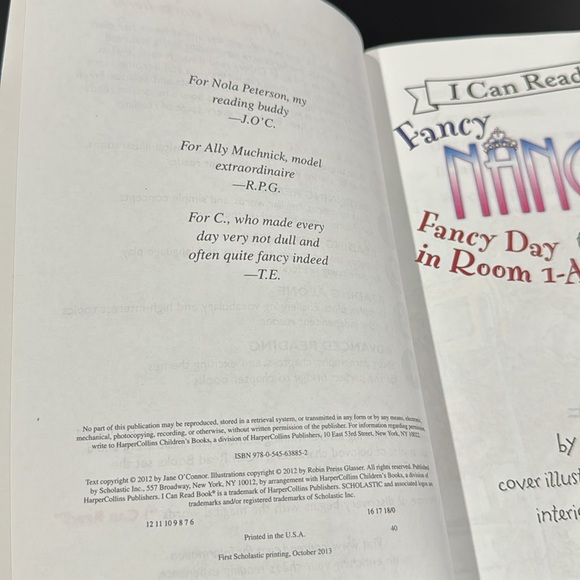 For Nola Peterson, my
reading buddy
—J.O'C.
For Ally Muchnick, model
extraordinaire
—R.P.G.
For C., who made every
day very not dull and
often quite fancy indeed
—T.E.
No part of this publication may be reproduced, stored in a retrieval system, or transmitted in any form or by any means, electronic,
mechanical, photocopying, recording, or otherwise, without written permission of the publisher. For information regarding permission,
write to HarperCollins Children's Books, a division of HarperCollins Publishers, 10 East 53rd Street, New York, NY 10022.
ISBN 978-0-545-63885-2
Text copyright © 2012 by Jane O'Connor. Illustrations copyright © 2012 by Robin Preiss Glasser. All rights reserved. Published
by Scholastic Inc., 557 Broadway, New York, NY 10012, by arrangement with HarperCollins Children's Books, a division of
HarperCollins Publishers. I Can Read Book® is a trademark of HarperCollins Publishers. SCHOLASTIC and associated logos are
trademarks and/or registered trademarks of Scholastic Inc.
12 11 10 9 8 7 6
16 17 18/0
Printed in the U.S.A.
40
First Scholastic printing, October 2013
I Can Read
Fancy
NANC
Fancy Day
in Room 1-A
by
cover illust
interi